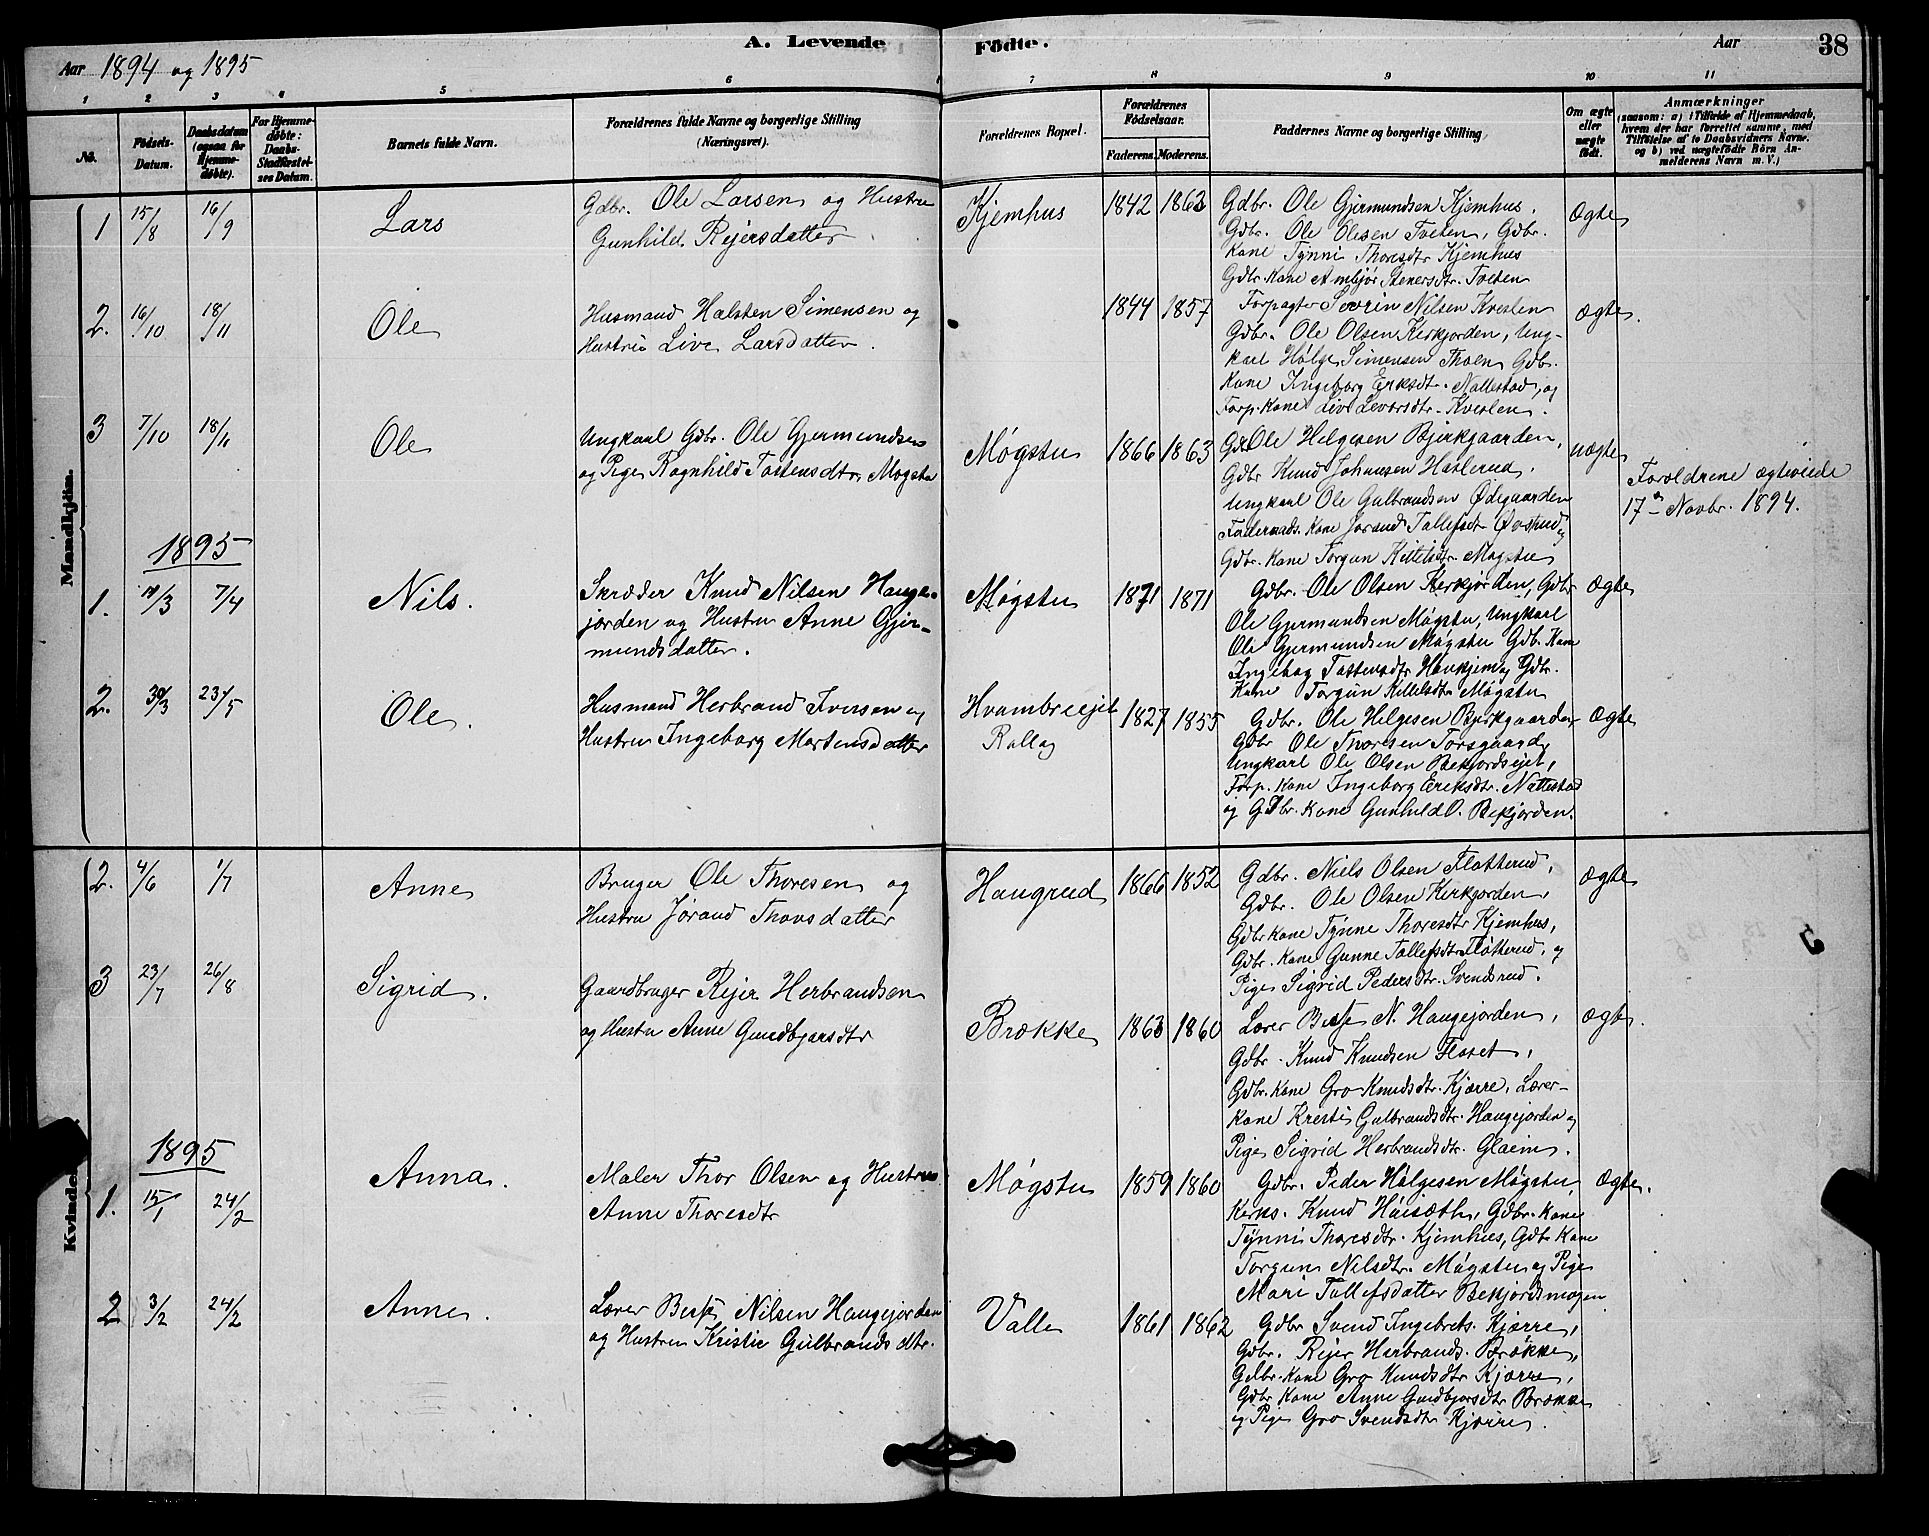 A. Levende Födte.
Aar 1894 og 1895
Aar 38
1 2 3 4 5 6 7 8 9 10 11
No.
Födsels-Datum.
Daabsdatum (ogsaa for Hjemme-döbte).
For Hjemme-döbte: Daabs-Stadfæstel-ses Datum.
Barnets fulde Navn.
Forældrenes fulde Navne og borgerlige Stilling (Næringsvei).
Forældrenes Bopæl.
Forældrenes Födselsaar.
Faderens. Moderens.
Faddernes Navne og borgerlige Stilling.
Om ægte eller uægte födt.
Anmærkninger
(saasom: a) i Tilfælde af Hjemmedaab,
hvem der har forrettet samme, med
Tilföielse af to Daabsvidners Navne,
og b) ved uægtefödte Börn An-
melderens Navn m. V.)
Mandkjön.
1 15/8 16/9 Lars
Gdbr. Ole Larsen og Hustru
Gunhild Rejersdatter
Kjemhus 1842 1863
Gdbr. Ole Gjermundsen Kjemhus,
Gdbr. Ole Olesen Tveten, Gdbr.
Kone Tynni Thoresdtr Kjemhus
Gdbr. Kone Ambjør Stenersdtr. Tveten
Ægte
2. 16/10 18/11 Ole
Husmand Halsten Simensen og
Hustru Live Larsdatter.
1844 1857
Forpagter Sevrin Nilsen Kveslen
Gdbr. Ole Olsen Kirkjorden, Ung-
karl Helge Simensen Thoen Gdbr.
Kone Ingeborg Eriksdtr. Nattestad, og
Forp. Kone Live Levorsdtr. Kveslen.
ægte.
3 7/10 18/11 Ole
Ungkarl Gdbr. Ole Gjermundsen
og Pige Ragnhild Tostensdtr Møgstu
Møgstu 1866 1863
Gdbr Ole Helgesen Bjerkgaarden,
Gdbr Knud Johansen Haslerud,
Ungkarl Ole Gulbrandsen Ødegaarden
Føderaads. Kone Jorand Tollefsdtr Øvstrud og
Gdbr. Kone Torgun Kittilsdtr. Møgstu
uægte
Forældrene ægteviede
17de Novbr. 1894.
1895
1. 10/3 7/4 Nils.
Skræder Knud Nilsen Hauge-
jorden og Hustru Anne Gjer-
mundsdatter.
Møgstu 1871 1871
Gdbr. Ole Olsen Kirkjorden, Gdbr
Ole Gjermundsen Møgstu, Ungkarl
Ole Gjermundsen Møgstu Gdb. Kone
Ingebor Tostensdtr Haukjem og Gdbr.
Kone Torgun Kittelsdtr Møgstu
Ægte
2. 30/3 23/5 Ole.
Husmand Herbrand Iversen og
Hustru Ingeborg Mortensdatter
Hvambrsejet
Rollag
1827 1855
Gdbr. Ole Helgesen Bjerkgaarden
Gdbr Ole Thoresen Torsgaard,
Ungkarl Ole Olsen Bekjordsejet,
Forp. Kone Ingeborg Eriksdtr. Nattestad
og Gdbr. Kone Gunhild O. Bekjorden.
Ægte
Kvinde
2. 4/6 1/7 Anne
Bruger Ole Thoresen og
Hustru Jørand Thorsdatter
Haugrud 1866 1852
Gdbr. Niels Olsen Flotterud,
Gdbr. Ole Olsen Kirkjorden,
Gdbr Kone Tynne Thoresdtr Kjemhus,
Gdbr. Kone Gunne Tollefsdtr Flotterud, og
Pige Sigrid Pedersdtr. Svendsrud.
ægte
3 23/7 26/8 Sigrid.
Gaardbruger Rejer Herbrandsen
og Hustru Anne Gundbjørsdtr
Brække 1863 1860
Lærer N. Haugejorden,
Gdbr. Knud Knudsen Floset,
Gdbr. Kone Gro Knudsdtr. Kjørre, Lærer-
kone Kresti Gulbrandsdtr. Haugejorden og
Pige Sigrid Herbrandsdtr. Glaim.
ægte.
1895
1. 15/1 24/2 Anna.
Maler Thor Olsen og Hustru
Anne Thoresdtr
Møgstu 1859 1860
Gdbr. Peder Helgesen Møgstu,
Kirks. Knud Høisæth, Gdbr. Kone
Tynni Thoresdtr. Kjemhus, Gdbr Kone
Torgun Nilsdtr. Møgstu og Pige
Mari Tollefsdatter Bekjordsmogen
Ægte.
2 3/2 24/2 Anne.
Lærer Nilsen Haugejorden
og Hustru Kristie Gulbrandsdtr.
Valle 1861 1862
Gdbr Svend Ingebrets. Kjørre,
Gdbr. Rejer Herbrands. Brække,
Gdbr. Kone Gro Knudsdtr Kjørre,
Gdbr Kone Anne Gundbjørsdtr Brække
og Pige Gro Svendsdtr Kjørre.